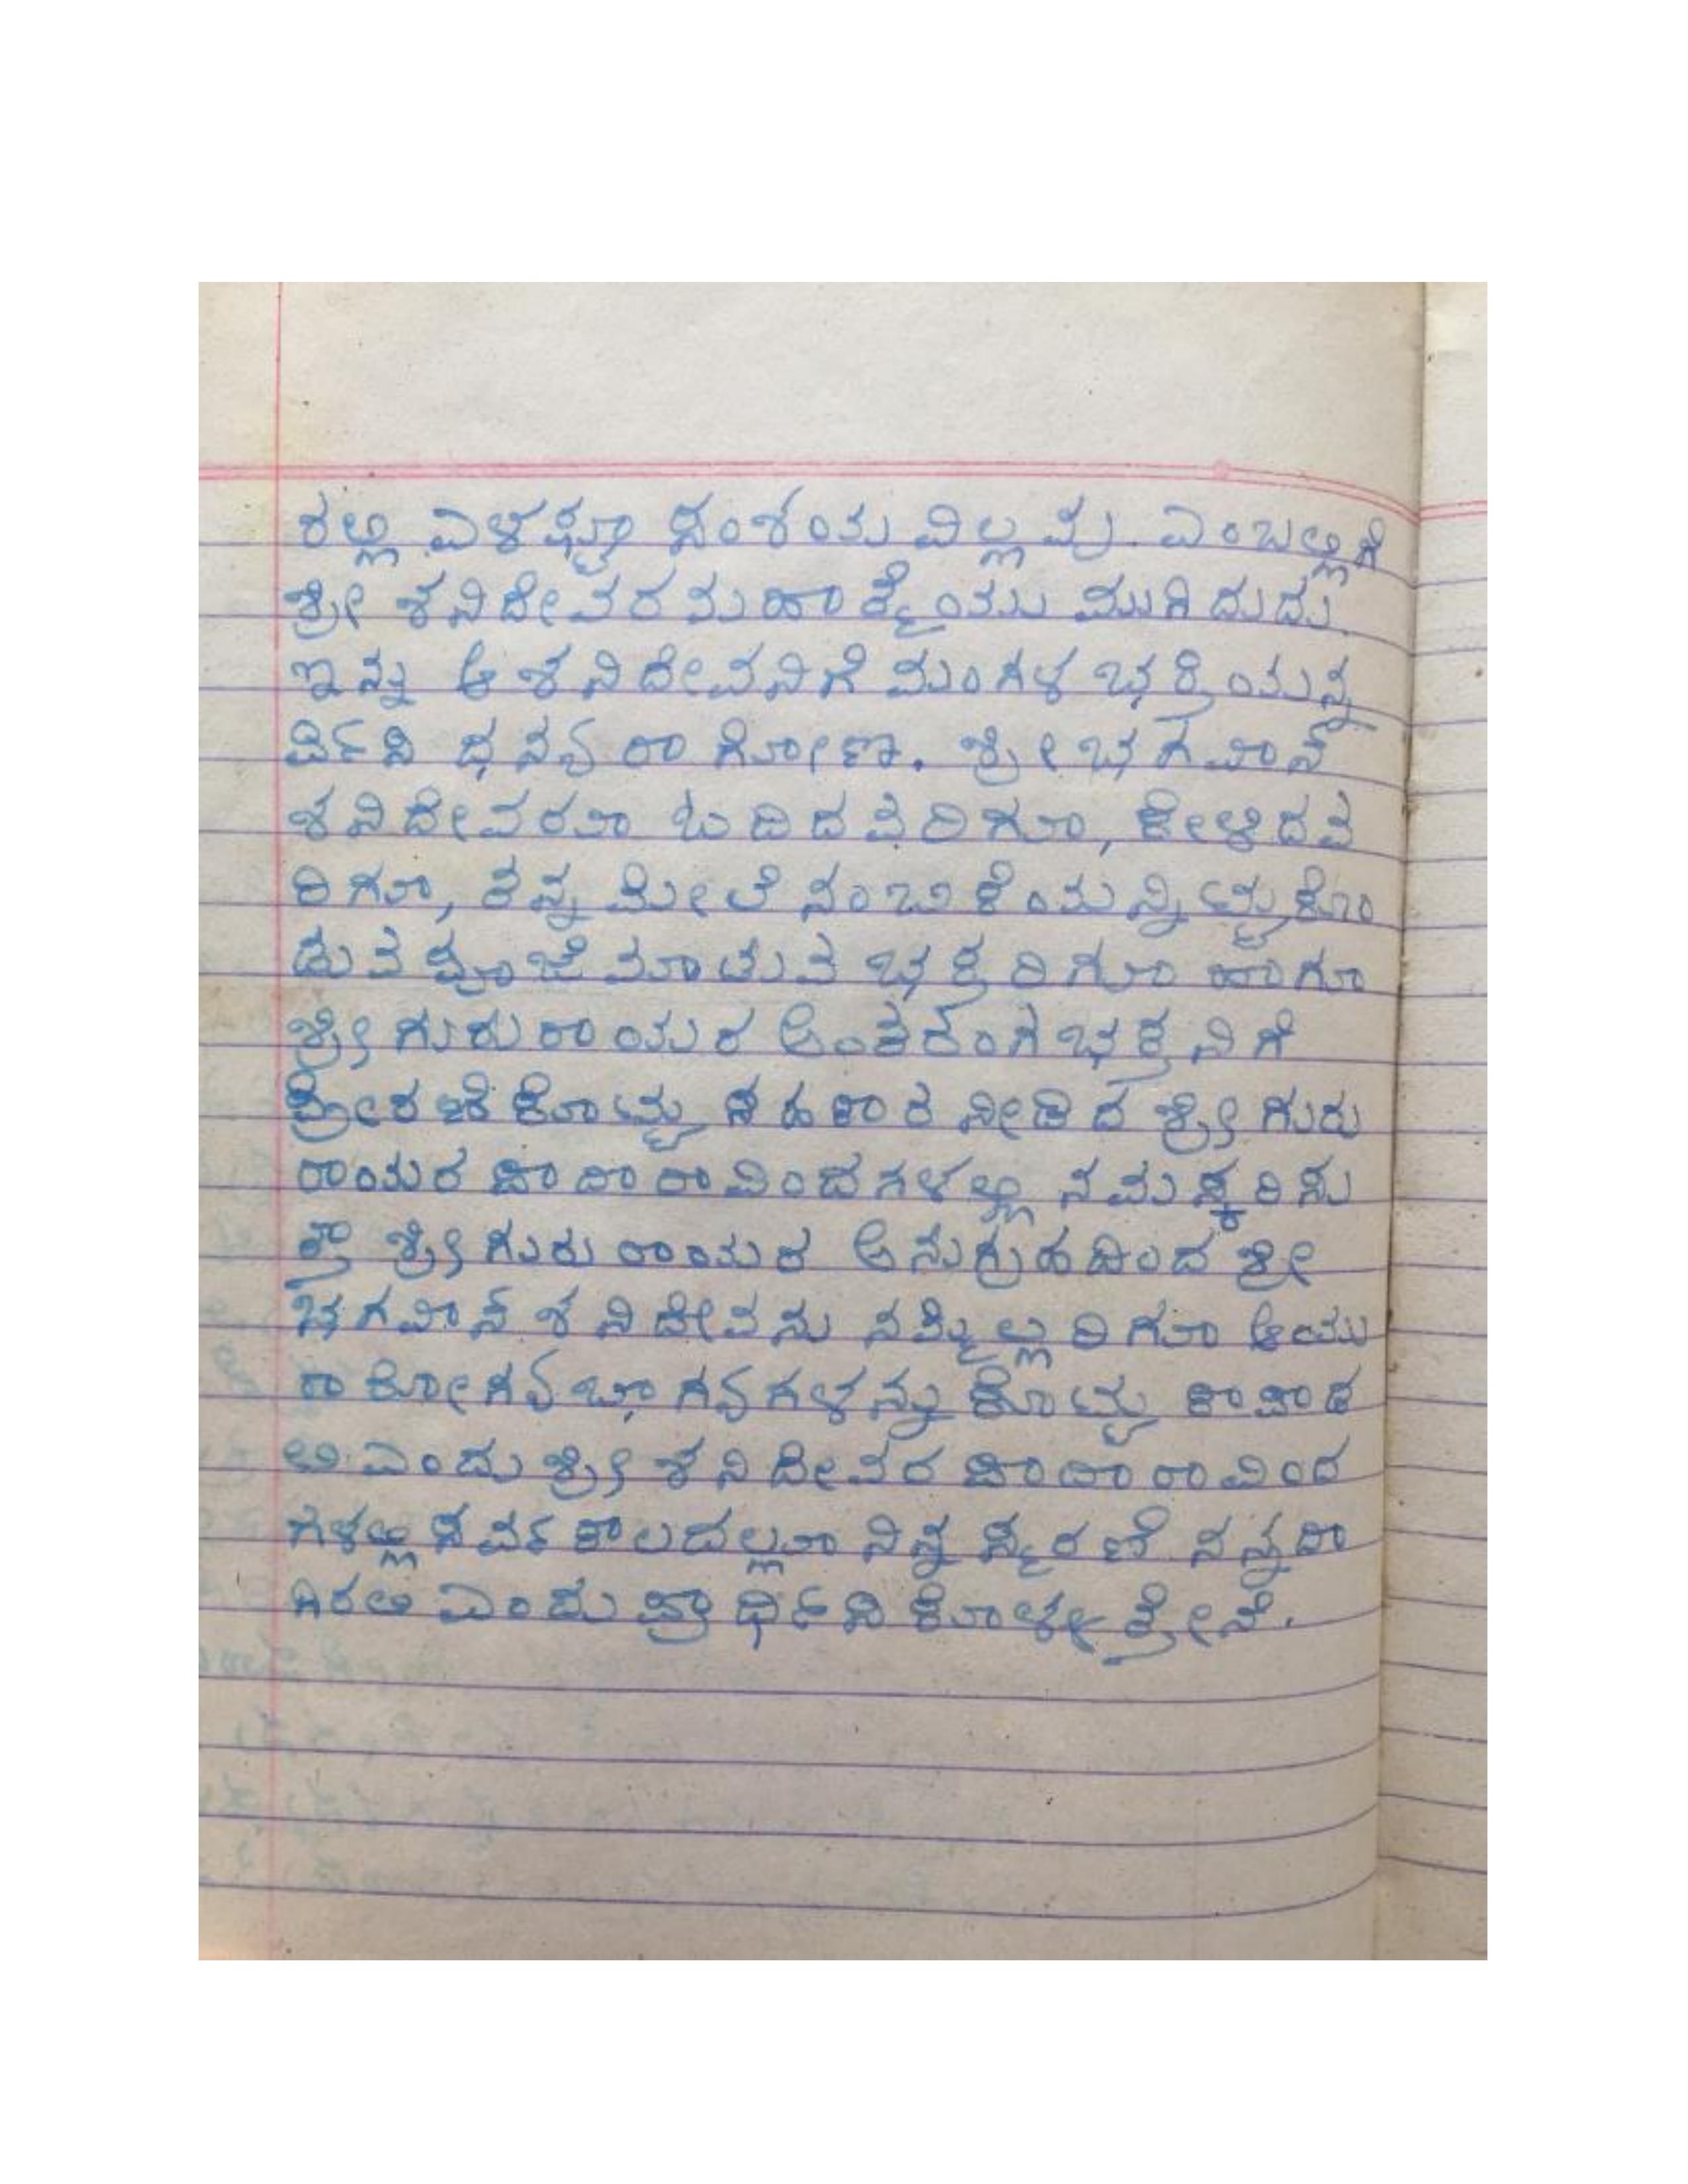 ರಲ್ಲಿ ಎಳಷ್ಟೂ ಸಂಶಯವಿಲ್ಲವು. ಎಂಬಲ್ಲಿಗೆ
ಶ್ರೀ ಶನಿದೇವರ ಮಹಾತ್ಮೆಯು ಮುಗಿದುದು.
ಇನ್ನು ಆ ಶನಿದೇವನಿಗೆ ಮಂಗಳ ಭಕ್ತಿಯನ್ನ
ರ್ಪಿಸಿ ಧನ್ಯರಾಗೋಣ. ಶ್ರೀ ಭಗವಾನ್
ಶನಿದೇವರೂ ಓದಿದವರಿಗೂ, ಕೇಳಿದವ
ರಿಗೂ, ತನ್ನ ಮೇಲೆ ನಂಬಿಕೆಯನ್ನಿಟ್ಟುಕೊಂ
ಡುವ ಪೂಜೆ ಮಾಡುವ ಭಕ್ತರಿಗೂ ಹಾಗೂ
ಶ್ರೀ ಗುರುರಾಯರ ಅಂತರಂಗ ಭಕ್ತನಿಗೆ
ಪ್ರೇರಣೆ ಕೊಟ್ಟು ಸಹಕಾರ ನೀಡಿದ ಶ್ರೀ ಗುರು
ರಾಯರ ಪಾದಾರಾವಿಂದಗಳಲ್ಲಿ ನಮಸ್ಕರಿಸು
ತ್ತಾ ಶ್ರೀ ಗುರುರಾಯರ ಅನುಗ್ರಹದಿಂದ ಶ್ರೀ
ಭಗವಾನ್ ಶನಿದೇವನು ನಮ್ಮೆಲ್ಲರಿಗೂ ಆಯು
ರಾರೋಗ್ಯಭಾಗ್ಯಗಳನ್ನು ಕೊಟ್ಟು ಕಾಪಾಡ
ಲಿ ಎಂದು ಶ್ರೀ ಶನಿದೇವರ ಪಾದಾರಾವಿಂದ
ಗಳಲ್ಲಿ ಸರ್ವಕಾಲದಲ್ಲೂ ನಿನ್ನ ಸ್ಮರಣೆ ನನ್ನದಾ
ಗಿರಲಿ ಎಂದು ಪ್ರಾರ್ಥಿಸಿಕೊಳ್ಳುತ್ತೇನೆ.